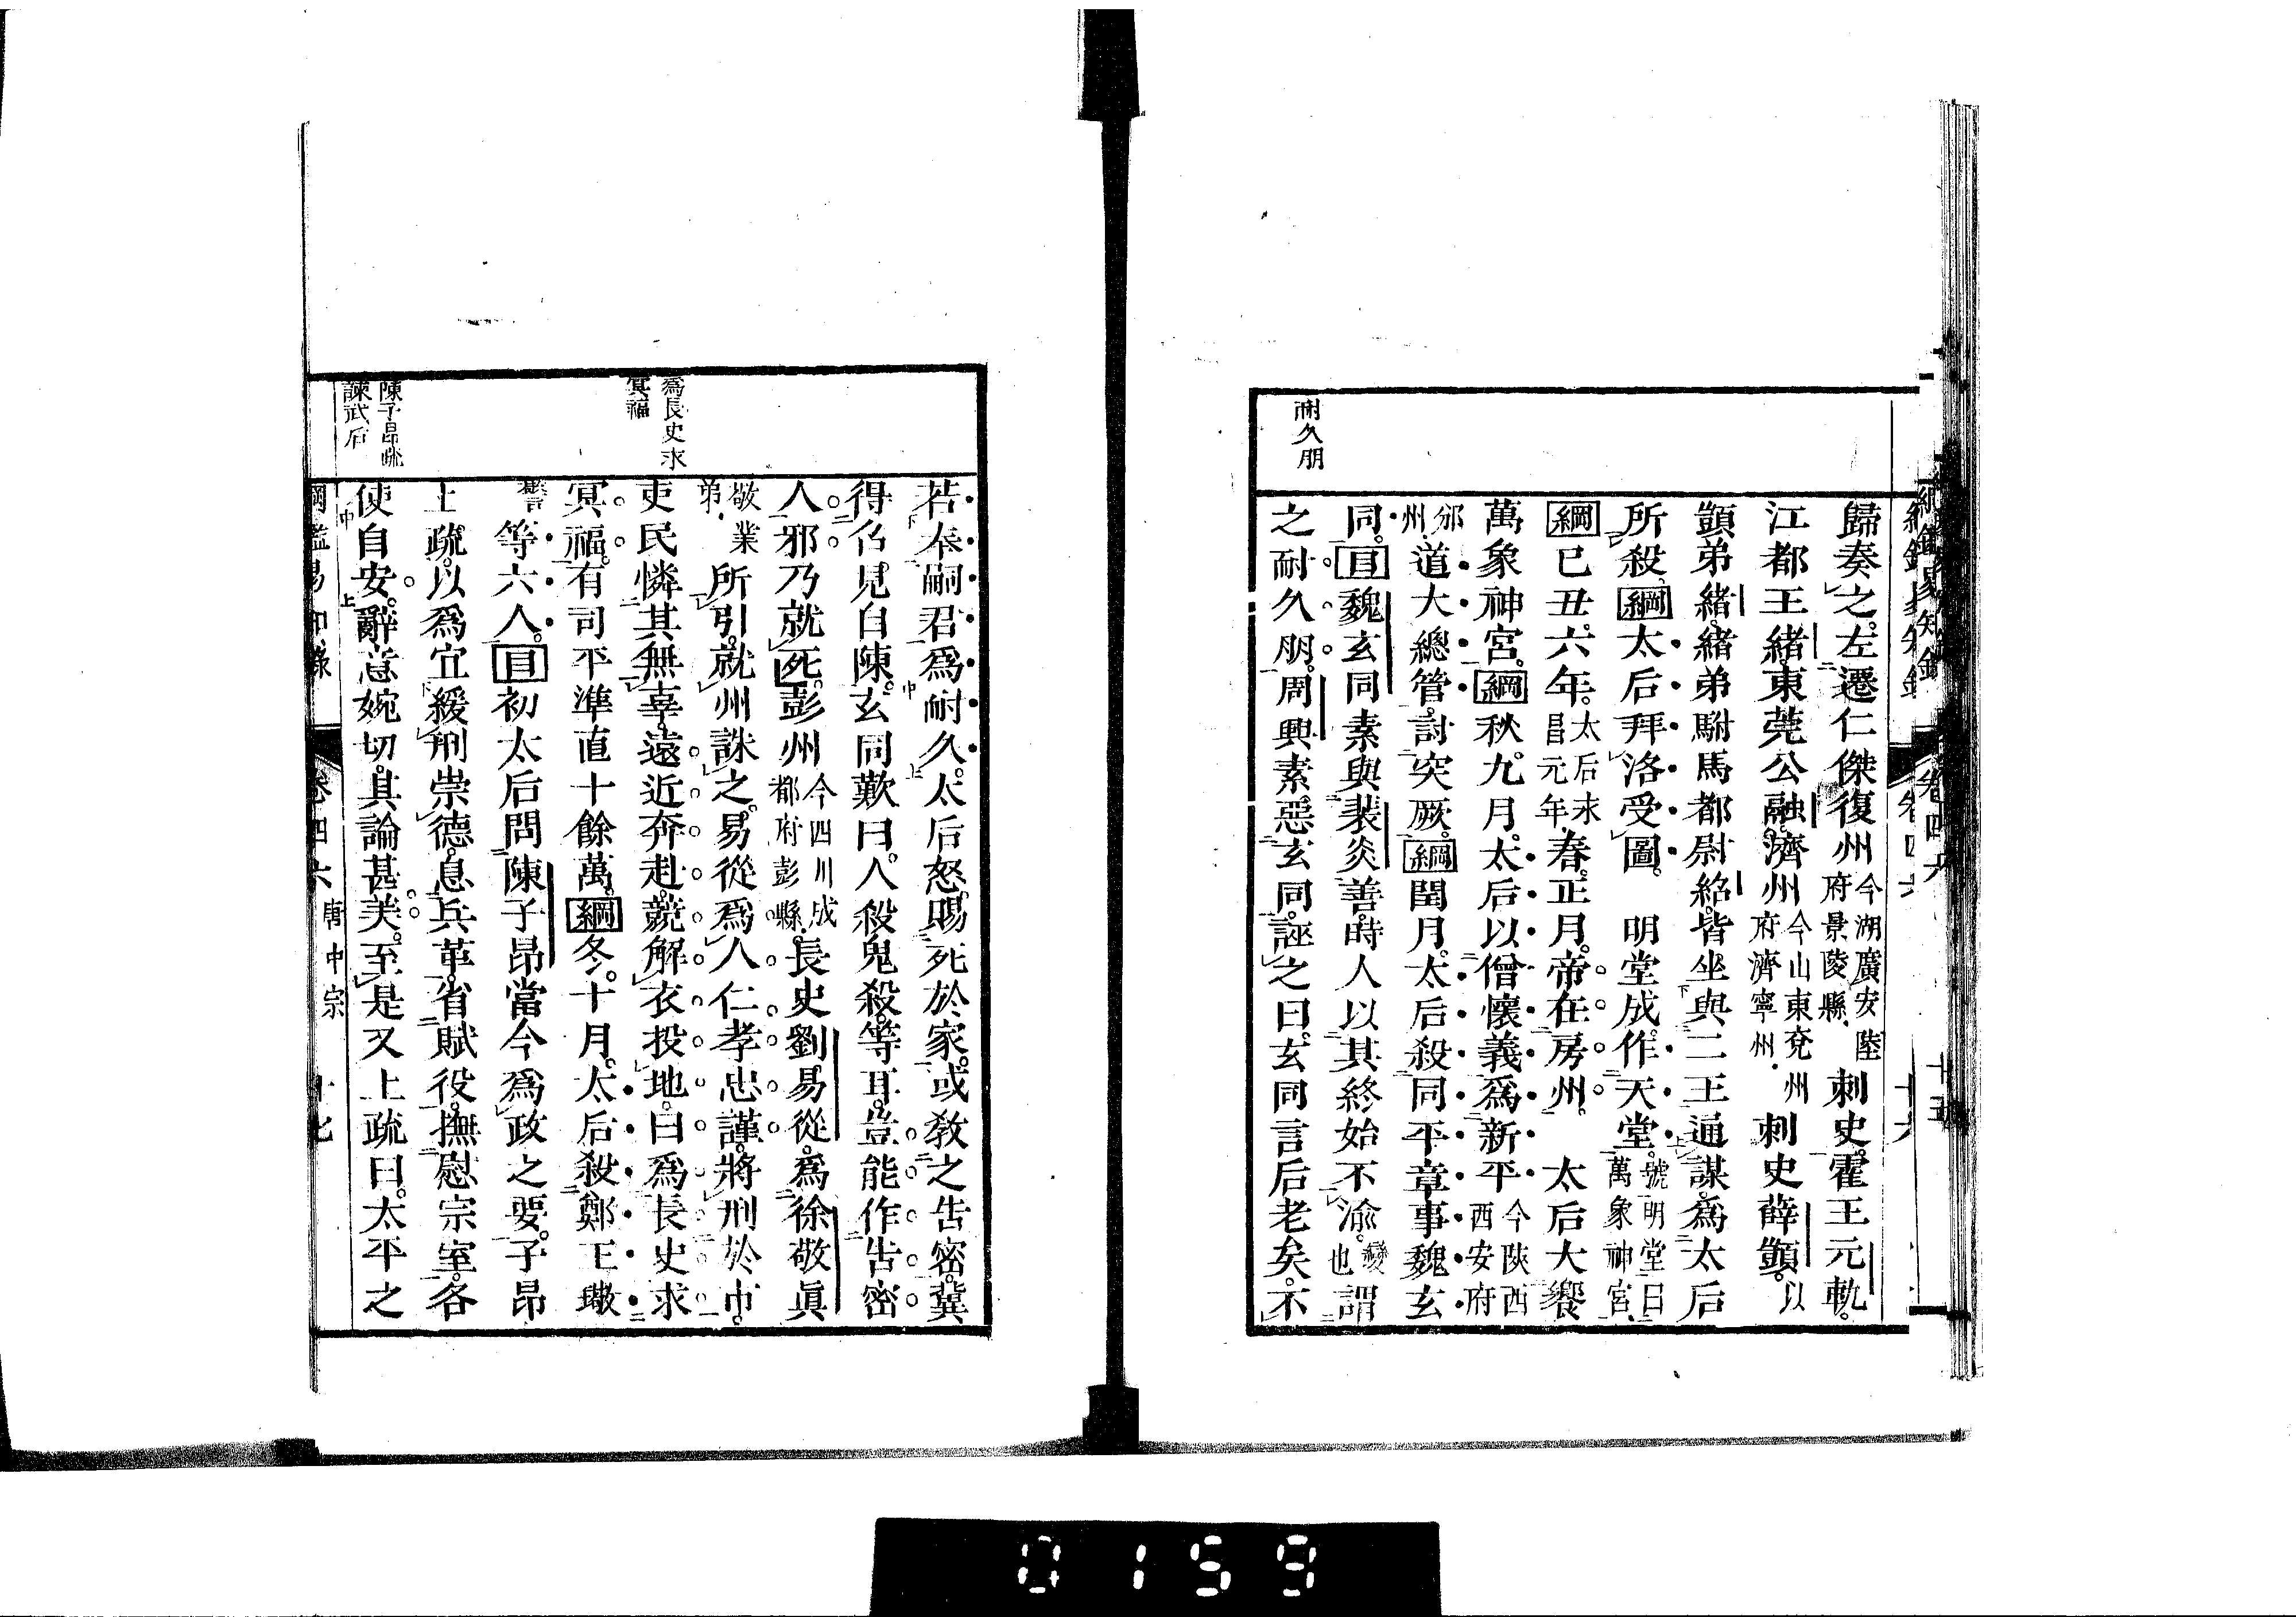 歸奏之。左遷仁傑復州今湖廣安陸府景陵縣。刺史。霍王元軌。
江都王緒。東莞公融。濟州今山東兗州府濟寧州。刺史薛顗。以
顗弟緒。緒弟駙馬都尉紹。皆坐與二王通謀。為太后
所殺。綱太后拜洛受圖。明堂成。作天堂。號明堂曰萬象神宮。
綱己丑。六年。太后永昌元年。春。正月。帝在房州。太后大饗
萬象神宮。綱秋。九月。太后以僧懷義為新平今陝西西安府
邠州。道大總管。討突厥。綱閏月。太后殺同平章事魏玄
同。目魏玄同素與裴炎善。時人以其終始不渝。變也謂
之耐久朋。周興素惡玄同。誣之曰。玄同言后老矣。不
耐久朋
若奉嗣君為耐久。太后怒。賜死於家。或教之告密。冀
得召見自陳。玄同歎曰。人殺鬼殺。等耳。豈能作告密
人邪。乃就死。彭州今四川成都府彭縣。長史劉易從。為徐敬真
敬業弟。所引。就州誅之。易從為人仁孝忠謹。將刑於市。
吏民憐其無辜。遠近奔赴。競解衣投地。曰為長史求
冥福。有司平準直十餘萬。綱冬。十月。太后殺鄭王璥
等六人。目初太后問陳子昂當今為政之要。子昂
上疏。以為宜緩刑崇德。息兵革。省賦役。撫慰宗室。各
使自安。辭意婉切。其論甚美。至是又上疏曰。太平之
為長史求
冥福
陳子昂疏
諫武后
綱鑑易知錄 卷四六 唐中宗 十七
0159